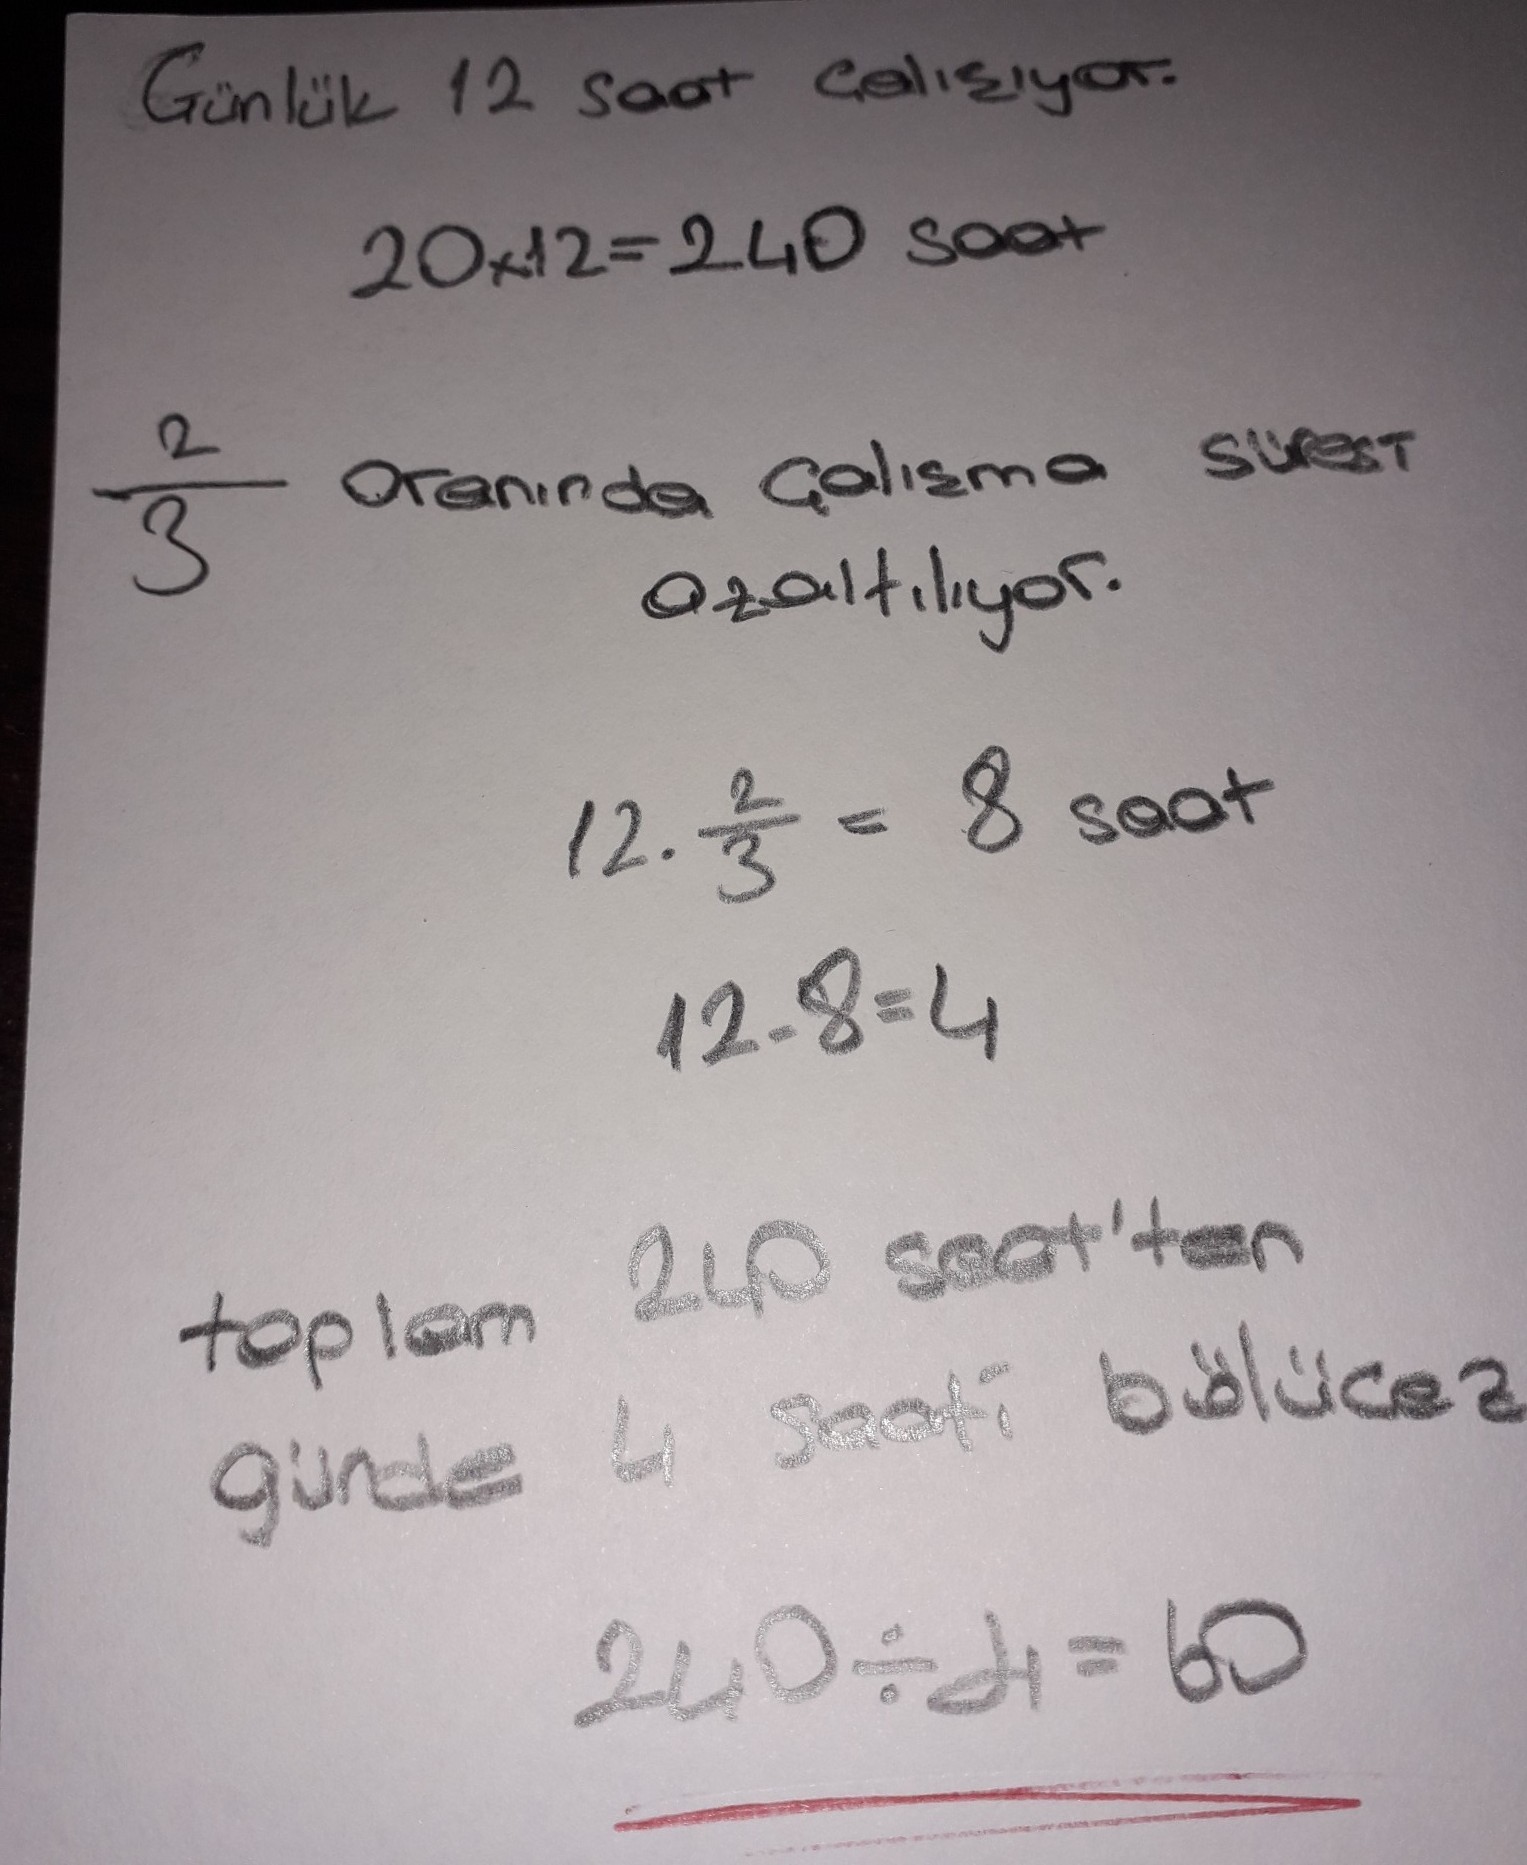 Günlük 12 saat çalışıyor.
20x12=240 saat
2/3 oranında çalışma süresi
azaltılıyor.
12. 2/3 = 8 saat
12-8=4
toplam 240 saat'ten
günde 4 saati bölücez
240÷4=60